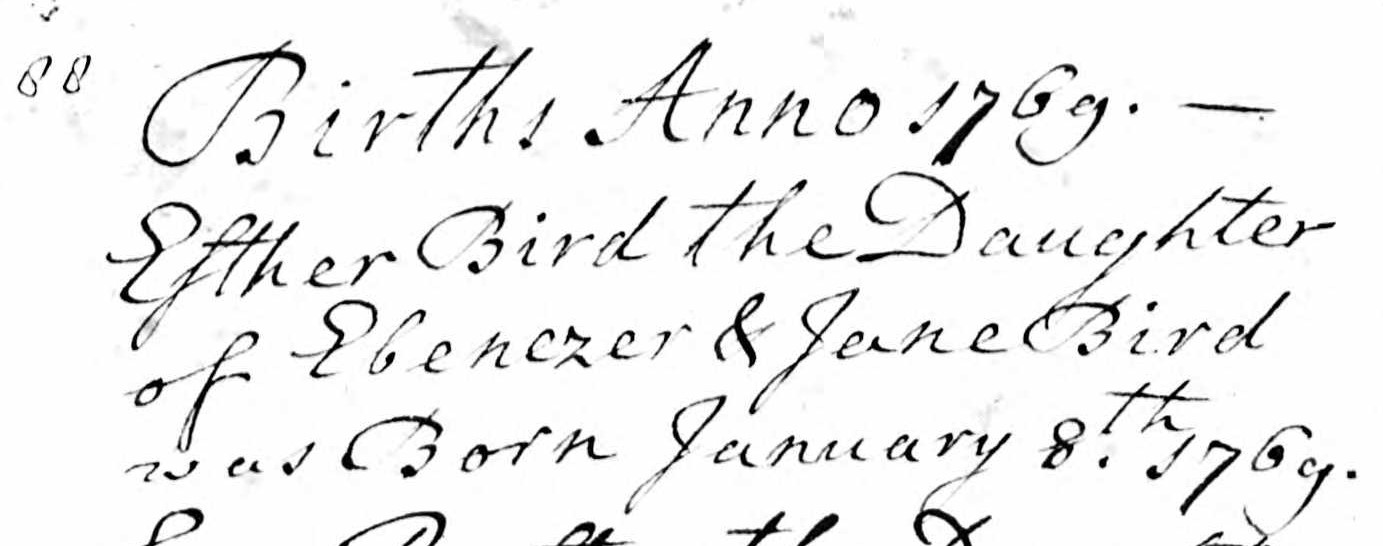 88
Births Anno 1769. —
Esther Bird the Daughter
of Ebenezer & Jane Bird
was Born January 8.th 1769.